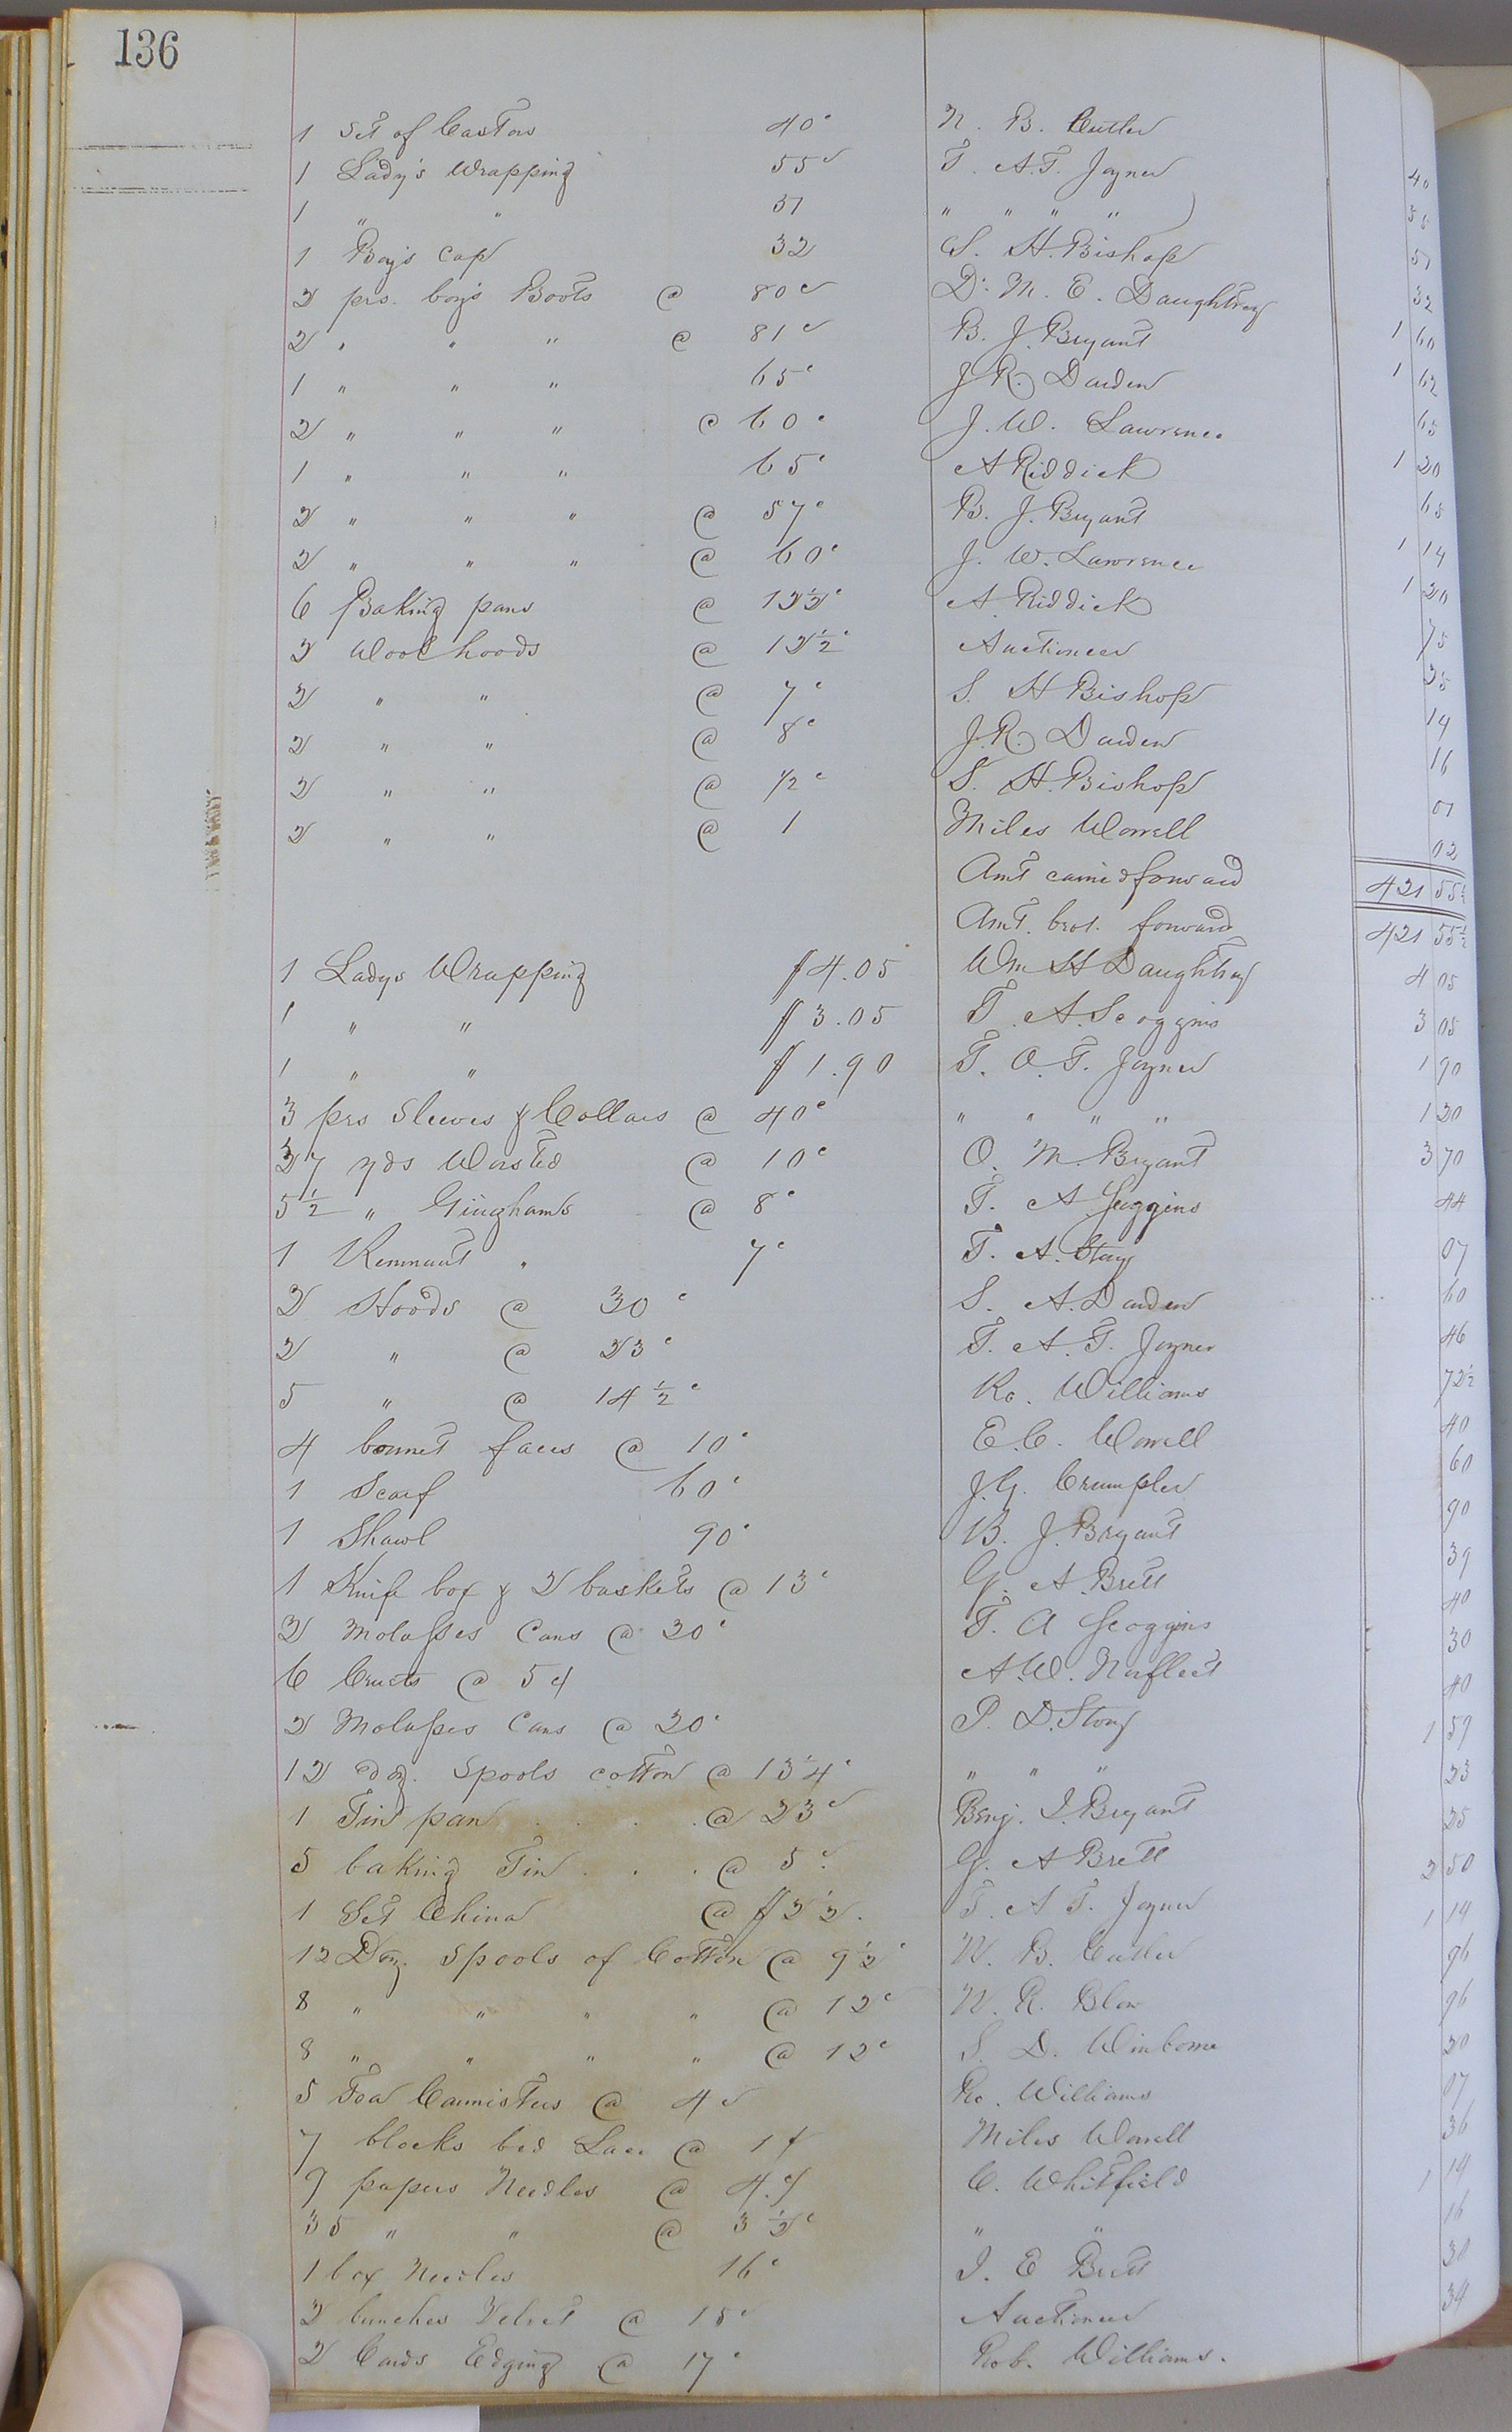 136
1 Set of Castors 40c N. B. Cutler 40
1 Lady's Wrapping 55c T. A. T. Joyner 55
1 " " 51 " " " " 51
1 Boy's cap 32 S. H. Bishop 32
2 prs. boy's Boots @ 80c Dr. M. E. Daughtrey 1 60
2 " " " @ 81c B. J. Bryant 1 62
1 " " " 65c J. R. Darden 65
2 " " " @ 60c J. W. Lawrence 1 20
1 " " " 65c A Riddick 65
2 " " " @ 57c B. J. Bryant 1 14
2 " " " @ 60c J. W. Lawrence 1 20
6 Baking pans @ 12½c A. Riddick 75
2 Wool hoods @ 12½c Auctioneer 25
2 " " @ 7c S. H Bishop 14
2 " " @ 8c J. R. Darden 16
2 " " @ ½c S. H. Bishop 01
2 " " @ 1 Miles Worrell 02
Amt carried forward 421 55½
Amt. brot. forward 421 55½
1 Ladys Wrapping $4.05 Wm H Daughtrey 4 05
1 " " $3.05 T. A. Scoggins 3 05
1 " " $1.90 T. A. T. Joyner 1 90
3 prs Sleeves & Collars @ 40c " " " " 1 20
37 yds Worsted @ 10c O. M. Bryant 3 70
5½ " Ginghams @ 8c T. A. Scoggins 44
1 Remnant " 7c T. A. 07
2 Hoods @ 30c S. A. Darden 60
2 " @ 23c T. A. T. Joyner 46
5 " @ 14½c Ro. Williams 72½
4 bonnet faces @ 10c E. C. Worrell 40
1 Scarf 60c J. G. Crumpler 60
1 Shawl 90c B. J. Bryant 90
1 Knife box & 2 baskets @ 13c G. A. Brett 39
2 Molasses Cans @ 20c T. A Scoggins 40
6 Cruets @ 5c A. W. Norfleet 30
2 Molasses Cans @ 20c P. D. Story 40
12 doz. Spools cotton @ 13¼c " " " 1 59
1 Tin pan @ 23c Benj. J. Bryant 23
5 baking Tin @ 5c G. A Brett 25
1 Set China @ $2½. T. A T. Joyner 2 50
12 Doz. Spools of Cotton @ 9½c N. B. Cutler 1 14
8 " " " " @ 12c W. R. Blow 96
8 " " " " @ 12c S. D. Winborne 96
5 Tea Cannisters @ 4c Ro. Williams 20
7 blocks bed Lace @ 1c Miles Worrell 07
9 papers Needles @ 4c C. Whitfield 36
35 " " @ 3½c " " 1 14
1 box Needles 16c J. E Brett 16
2 bunches Velvet @ 15c Auctioneer 30
2 Cards Edging @ 17c Rob. Williams. 34